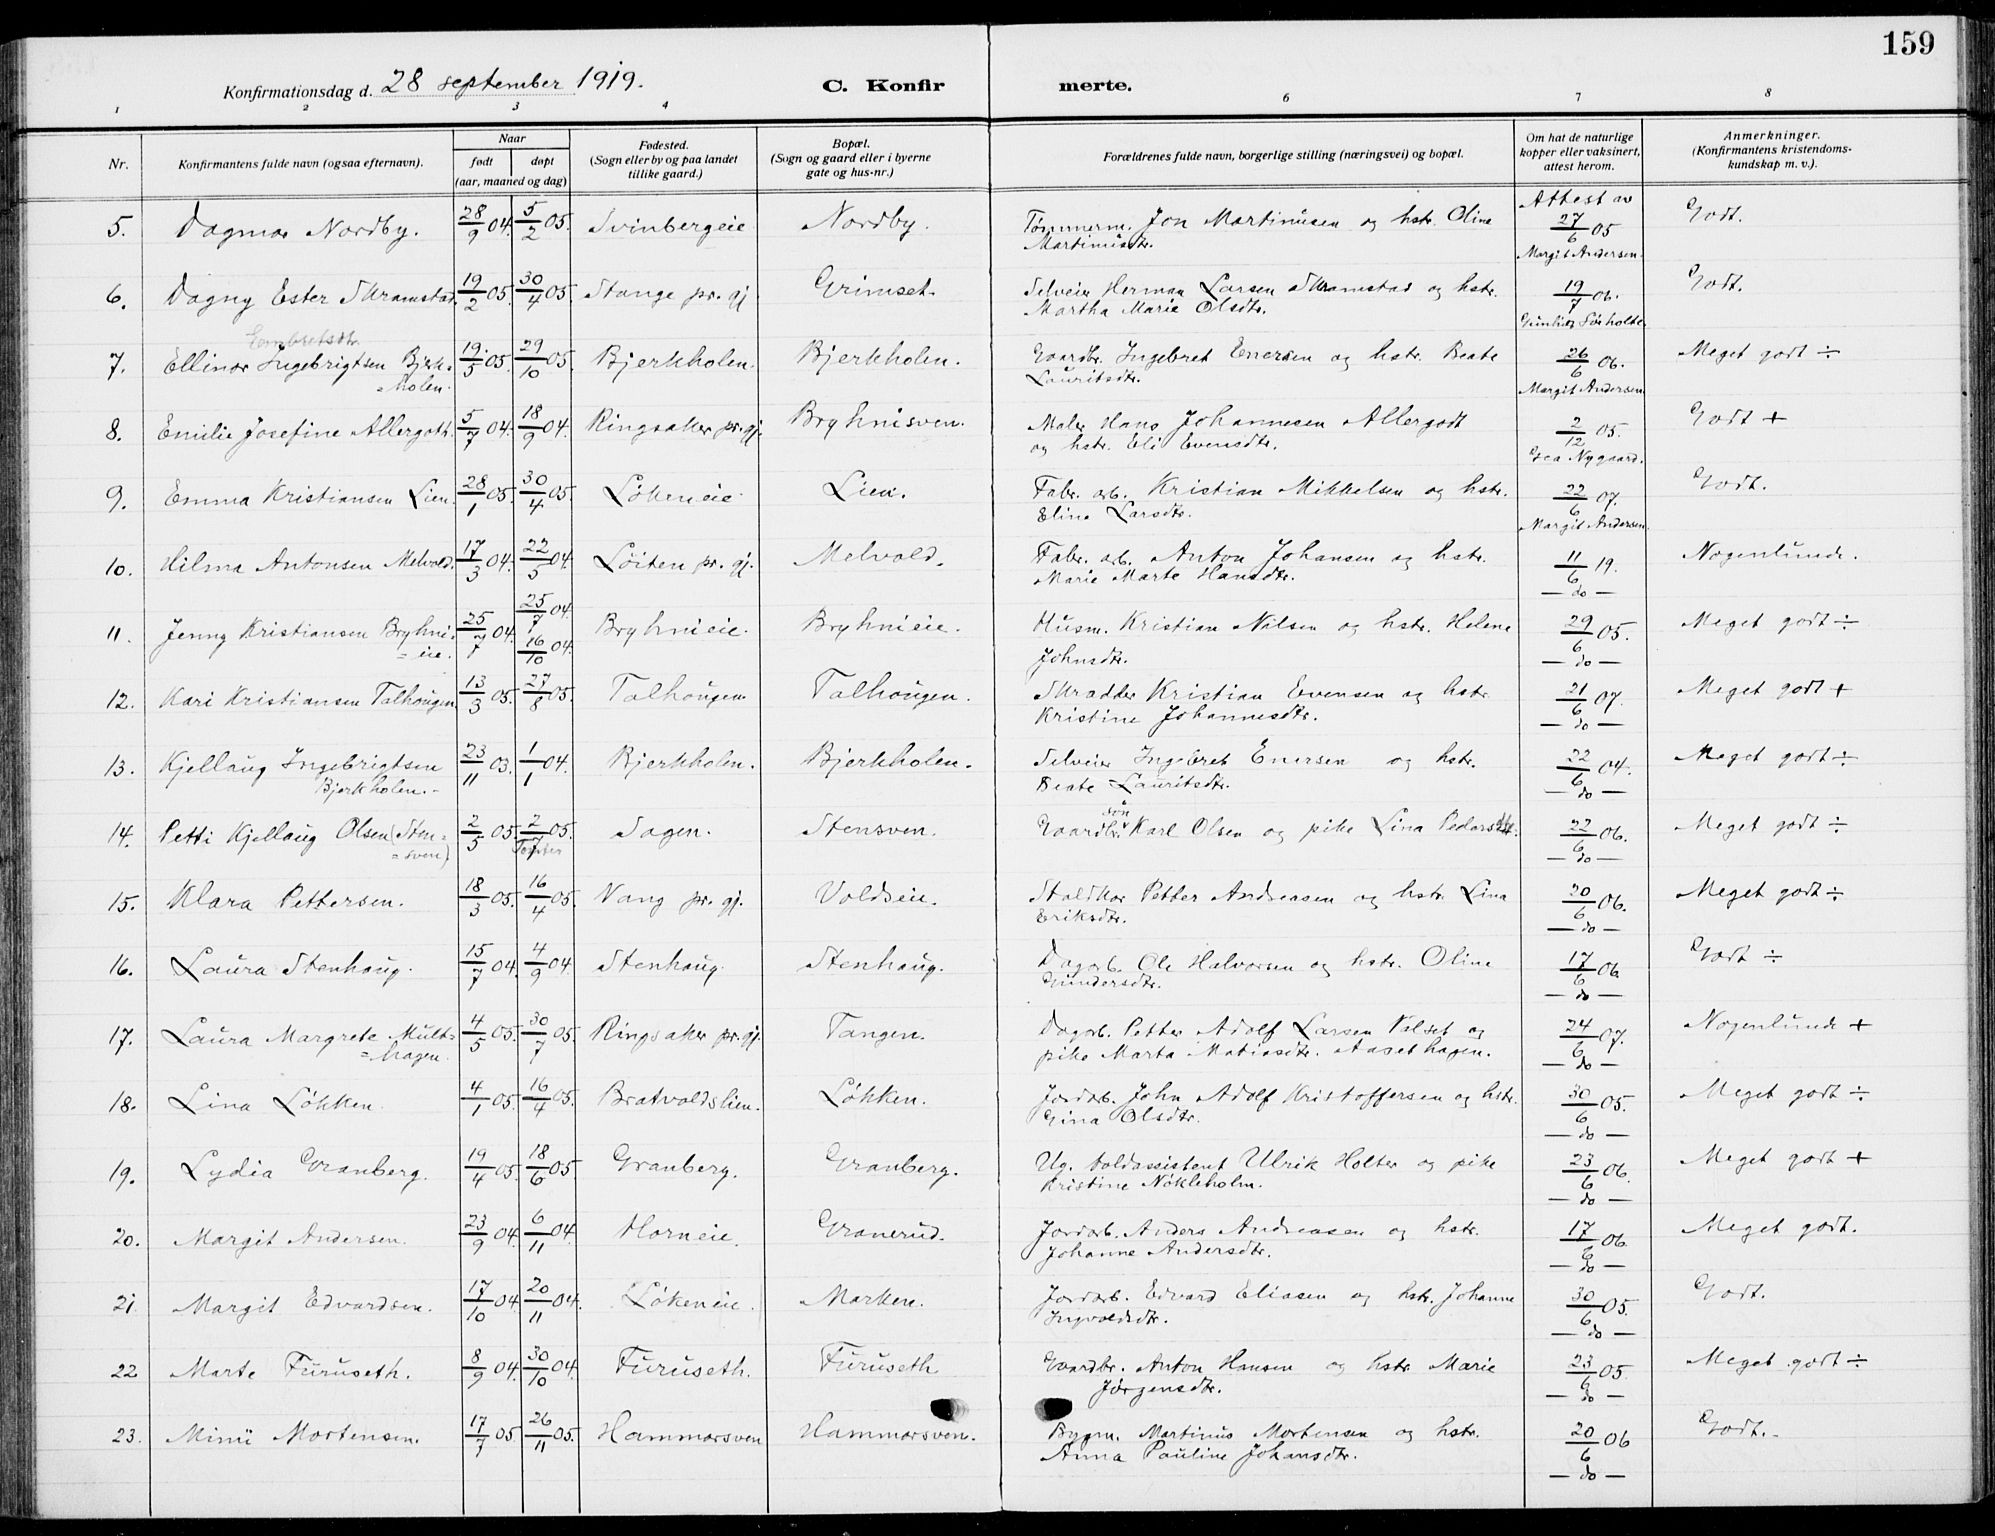 159
Konfirmationsdag d. 28 september 1919. C. Konfirmerte.
1 2 3 4 6 7 8
Nr. Konfirmantens fulde navn (ogsaa efternavn). Naar født døpt (aar, maaned og dag) Fødested. (Sogn eller by og paa landet tillike gaard.) Bopæl. (Sogn og gaard eller i byerne gate og hus-nr.) Forældrenes fulde navn, borgerlige stilling (næringsvei) og bopæl. Om hat de naturlige kopper eller vaksinert, attest herom. Anmerkninger. (Konfirmantens kristendomskundskap m. v.).
5. Dagmar Nordby. 28/9 04. 5/2 05. Svinbergeie Nordby. Tømmerm. Jon Martinusen og hstr. Oline Attest av 27/6 05 Godt.
Martinusdtr. Margit Andersen.
6. Dagny Ester Skramstad. 19/2 05. 30/4 05. Stange pr. gj. Grimset. Selveier Herman Larsen Skramstad og hstr. 19/7 06. Godt.
Martha Marie Olsdtr. Sørholte
Embretsdtr.
7. Ellinor Ingebrigtsen Bjerk- 19/5 05. 29/10 05. Bjerkholen. Bjerkholen. Gaardbr. Ingebret Enersen og hstr. Beate 26/6 06. Meget godt ÷
=holen. Lauritsdtr. Margit Andersen
8. Emilie Josefine Allergoth. 5/7 04. 18/9 04. Ringsaker pr. gj. Bryhnisven. Maler Hans Johannesen Allergodt 2/12 05. Godt +
og hstr. Eli Evensdtr. Nygaard.
9. Emma Kristiansen Lien. 28/1 05. 30/4 05. Løkeneie Lien. Fabr. arb. Kristian Mikkelsen og hstr. 22/6 07. Godt.
Eline Larsdtr. Margit Andersen.
10. Hilma Antonsen Melvold. 17/3 04. 22/5 04 Løiten pr. gj. Melvold. Fabr. arb. Anton Johansen og hstr. 11/6 19. Nogenlunde.
Marie Marte Hansdtr. — do —
11. Jenny Kristiansen Bryhni- 25/7 04. 25/7 04. 16/10 04. Bryhnieie. Bryhnieie. Husm. Kristian Nilsen og hstr. Helene 29/6 05. Meget godt ÷
=eie. Johnsdtr. — do —
12. Kari Kristiansen Talhougen 13/3 05. 27/8 05. Talhougen Talhougen. Skradder Kristian Evensen og hstr. 21/6 07. Meget godt +
Kristine Johannesdtr. — do —
13. Kjellaug Ingebrigtsen 23/11 03. 1/1 04. Bjerkholen. Bjerkholen. Selveier Ingebret Enersen og hstr. 22/6 04. Meget godt ÷
Bjerkholen.- Beate Lauritsdtr. — do —
14. Petti Kjellaug Olsen (Sten- 2/5 05. 2/7 05. Sagen. Stensven. Gaardbr. søn Karl Olsen og pike Lina Pedersdtr. 22/6 06. Meget godt ÷
=sven) — do —
15. Klara Pettersen. 18/3 05. 16/4 05. Vang pr. gj. Voldseie. Staldkar Petter Andreasen og hstr. Lina 20/6 06. Meget godt ÷
Eriksdtr. — do —
16. Laura Stenhaug. 15/7 04. 4/9 04. Stenhaug. Stenhaug. Dagarb. Ole Halvorsen og hstr. Oline 17/6 06 Godt ÷
Gundersdtr. — do —
17. Laura Margrete Mult- 4/5 05. 30/7 05. Ringsaker pr. gj. Tangen. Dagarb. Petter Adolf Larsen Valset og 24/6 07. Nogenlunde +
=hagen. pike Marta Matiasdtr. Aasethagen. — do —
18. Lina Løkken. 4/1 05. 16/4 05. Bratvoldslien. Løkken. Jordarb. John Adolf Kristoffersen og hstr. 30/6 05. Meget godt ÷
Gina Olsdtr. — do —
19. Lydia Granberg. 19/4 05. 18/6 05. Granberg. Granberg. Ug. toldassistent Ulrik Holter og pike 23/6 06. Meget godt +
Kristine Nøkleholm. — do —
20. Margit Andersen. 23/9 04. 6/11 04. Horneie. Granerud. Jordarb. Anders Andreasen og hstr. 17/6 06. Meget godt.
Johanne Andersdtr. — do —
21. Margit Edvardsen. 17/10 04. 20/11 04. Løkeneie. Marken. Jordarb. Edvard Eliasen og hstr. Johanne 30/6 05. Godt.
Ingvoldsdtr. — do —
22 Marte Furuseth. 8/9 04. 30/10 04. Furuseth. Furuseth Gaardbr. Anton Hansen og hstr. Marie 23/6 05. Meget godt ÷
Jørgensdtr. — do —
23. Mimi Mortensen. 17/7 05. 26/11 05. Hammarsven Hammarsven. Bygm. Martinus Mortensen og hstr. 20/6 06 Godt.-
Anna Pauline Johansdtr. — do —